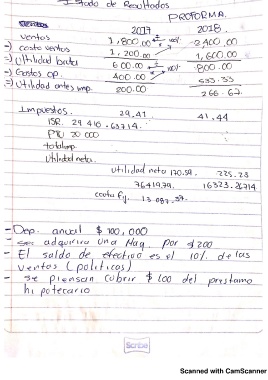 Estado de Resultados
PROFORMA.
2017 2018
ventas 1,800.00 2400.00
-) costo ventas 1,200.00 1,600.00
=) Utilidad bruta 600.00 800.00
-) Gastos op. 400.00 533.33
=) Utilidad antes imp. 200.00 266.67
Impuestos. 29,41 41,44
ISR. 29 410.
PTU 20 000
utilidad neta.
utilidad neta 170.59. 225.23
cuota fij.
- Dep. anual $100,000
- se adquirira una Maq. por $200
- El saldo de efectivo es el 10% de las
ventas (politicas)
- se piensan cubrir $100 del prestamo
hipotecario
Scribe
Scanned with CamScanner